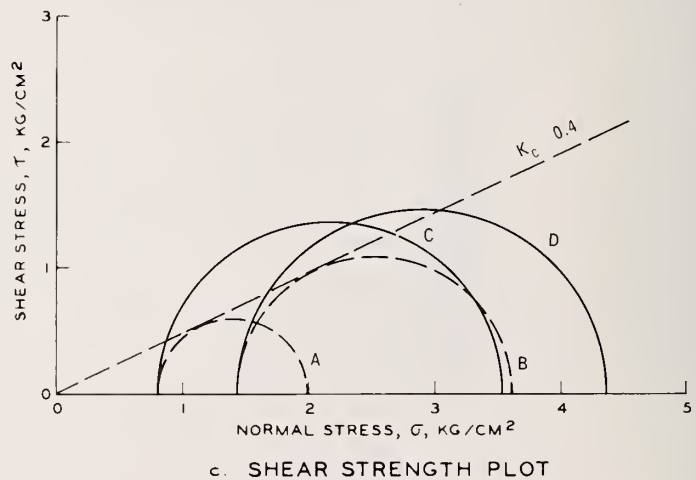 3
2
1
0
SHEAR STRESS, τ, KG/CM²
K_C 0.4
C
D
A
B
0 1 2 3 4 5
NORMAL STRESS, σ, KG/CM²
c. SHEAR STRENGTH PLOT